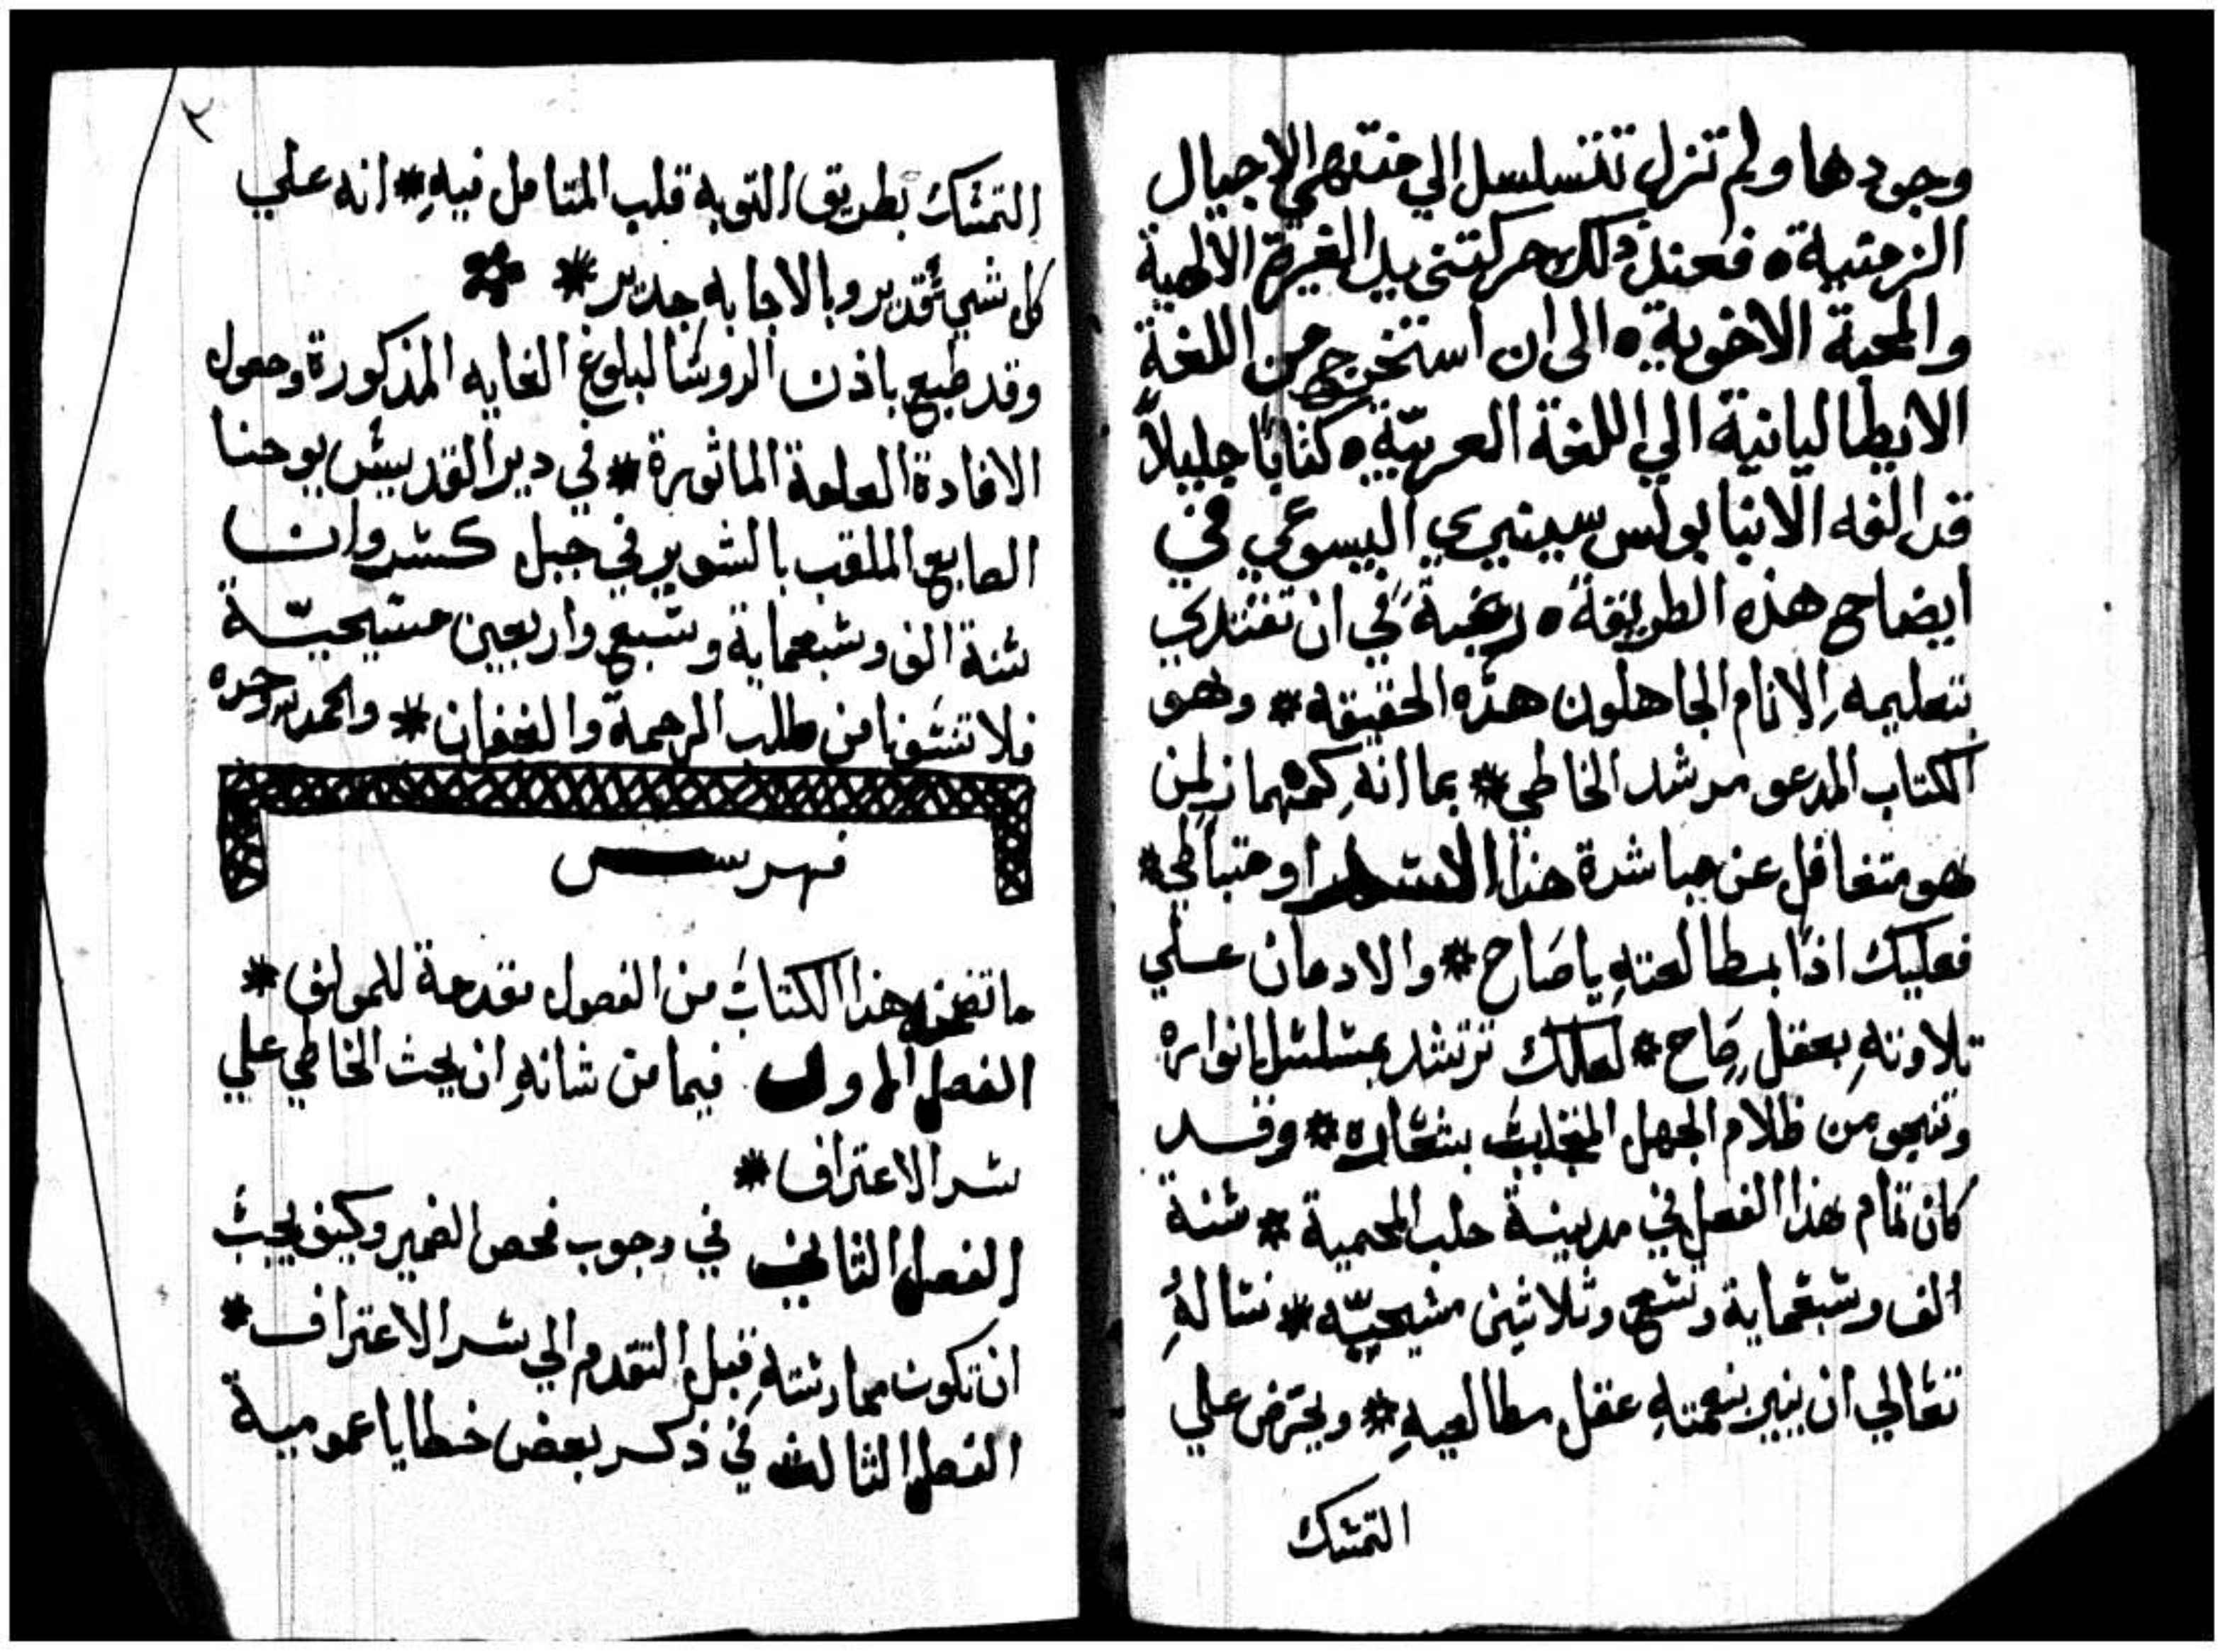 وجودها ولم تزل تتسلسل الي منتهي الاجيال
الزمنية ٥ فعند ذلك حركتني يد الغيرة الالهية
والمحبة الاخوية ٥ الى ان استخرج من اللغة
الايطاليانية الي اللغة العربيّة ٥ كتابًا جليلاً
قد الفه الانبا بولس سينيري اليسوعي في
ايضاح هذه الطريقة ٥ رغبةً في ان تقتدي
بتعليمهِ الانام الجاهلون هذه الحقيقه * وهو
الكتاب المدعو مرشد الخاطي * بما انهِ كمهماز لمن
هو متغافل عن مباشرة هذا السر او متباطي *
فعليك اذًا بمطالعتهِ ياصَاح * والادمان علي
تلاوتهِ بعقلٍ صَاح * لعلك ترتشد بمشلشل انواره
وتنجو من ظلام الجهل * وقد
كان تمام هذا الفصل في مدينة حلب المحمية * شنة
الف وشبعماية وتشع وثلاثين مشيحيّه * نشالهُ
تعالي ان ينير بنعمتهِ عقل مطالعيهِ * ويحرض علي
التمشك
٢
التمشك بطريق التوبه قلب المتامل فيهِ * انه علي
كل شي قدير وبالاجابه جدير *
وقد طبع باذن الروشا لبلوغ الغايه المذكورة وحصول
الافادة العامة الماثورة * في دير القديش يوحنا
الصابغ الملقب بالشوير في جبل كشروان
شنة الف وشبعماية وشبع واربعين مشيحيّة
فلا تنشونا من طلب الرحمة والغفران * والحمد لله وحده
فهرس
ما تضمنه هذا الكتاب من الفصول مقدمة للمولف *
الفصل الاول فيما من شانهِ ان يحث الخاطي علي
شر الاعتراف *
الفصل الثاني في وجوب فحص الضمير وكيف يجب
ان تكون ممارشتهِ قبل التقدم الي شر الاعتراف *
الفصل الثالث في ذكر بعض خطايا عمومية